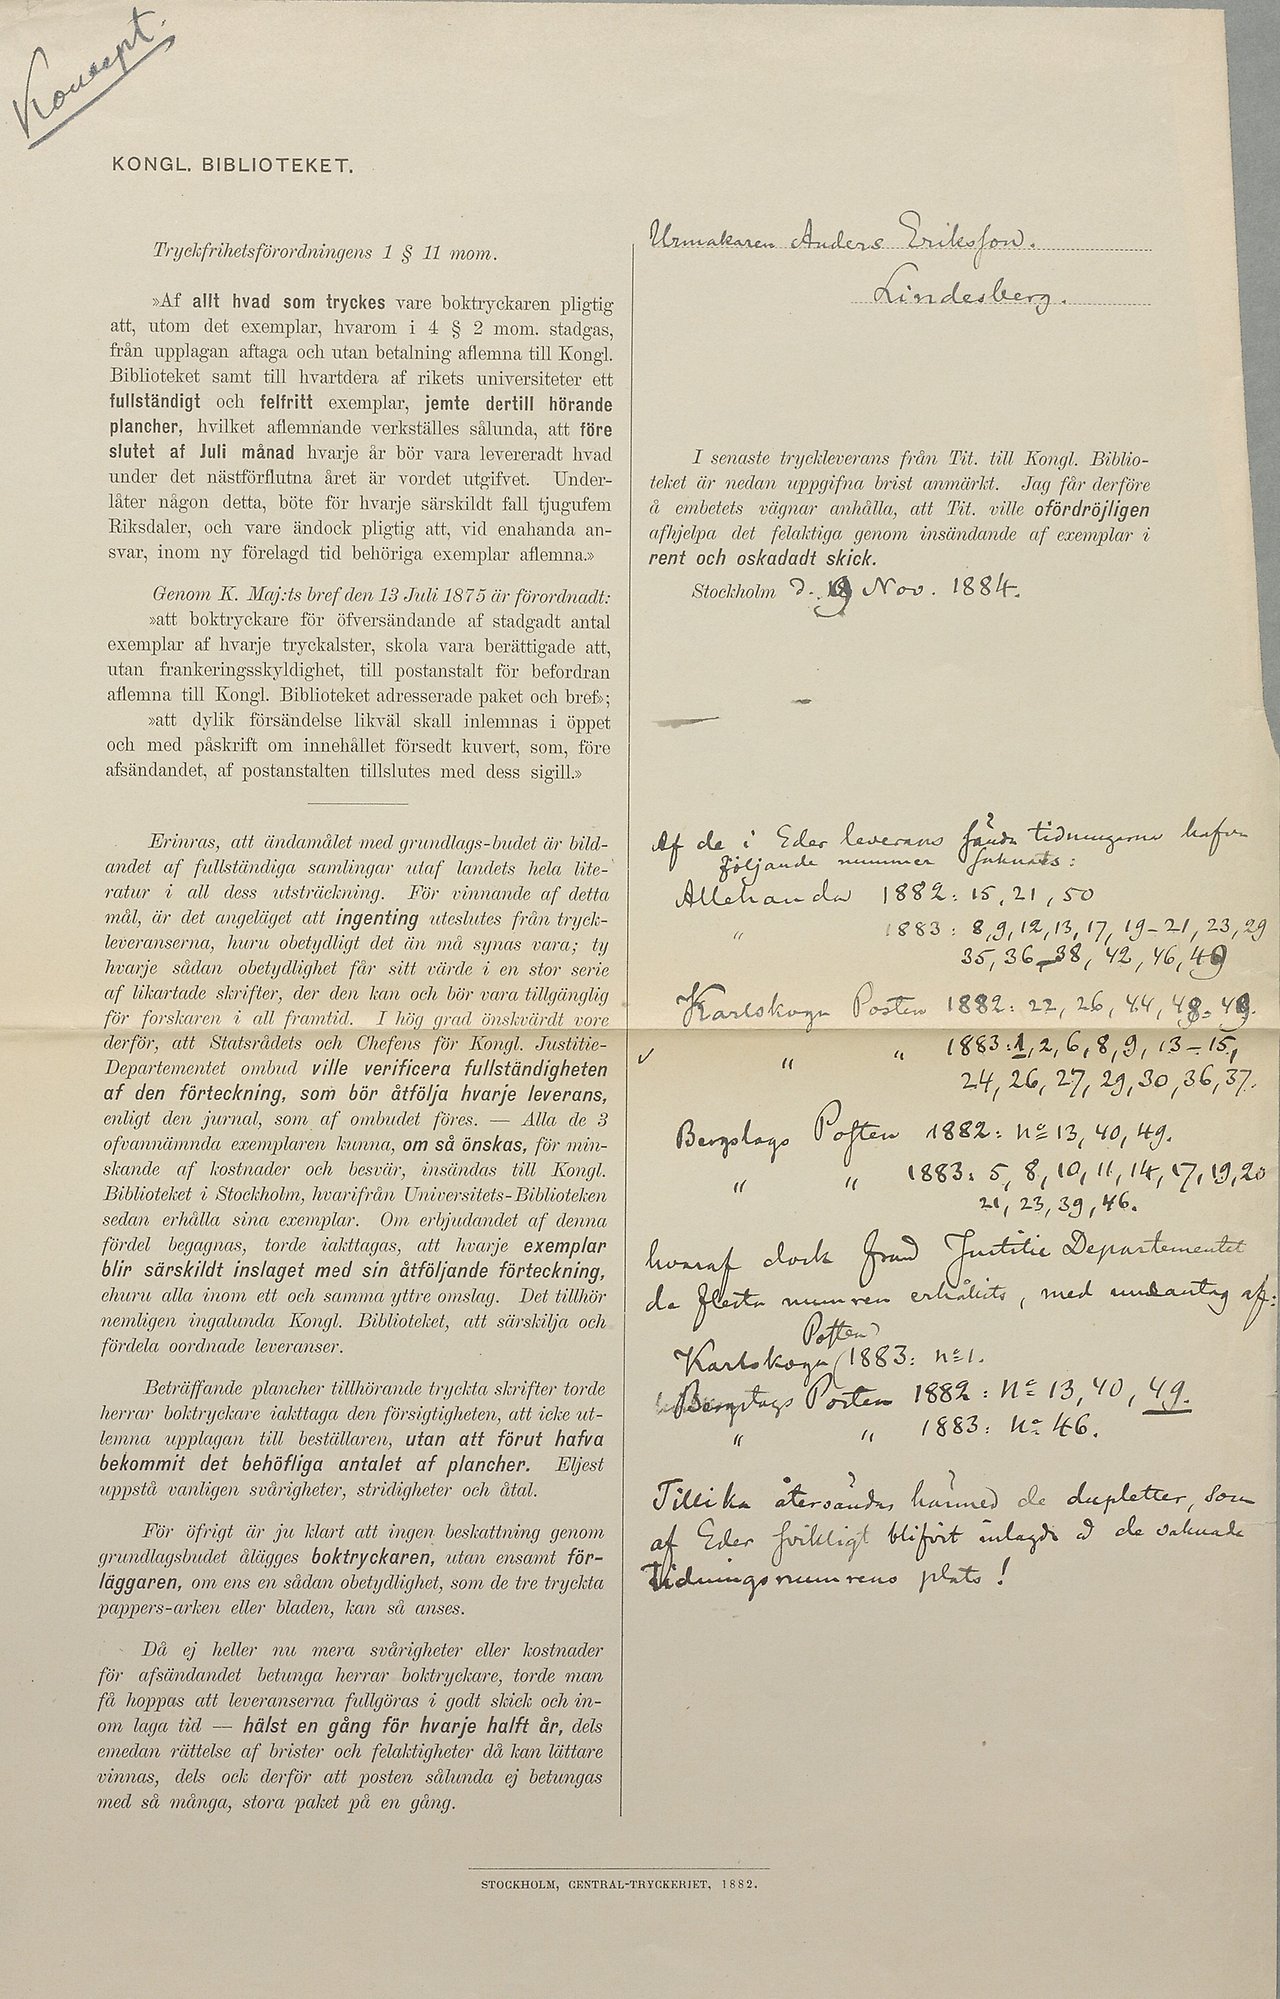 Koncept.
KONGL. BIBLIOTEKET.
Tryckfrihetsförordningens 1 § 11 mom.
»Af allt hvad som tryckes vare boktryckaren pligtig
att, utom det exemplar, hvarom i 4 § 2 mom. stadgas,
från upplagan aftaga och utan betalning aflemna till Kongl.
Biblioteket samt till hvartdera af rikets universiteter ett
fullständigt och felfritt exemplar, jemte dertill hörande
plancher, hvilket aflemnande verkställes sålunda, att före
slutet af Juli månad hvarje år bör vara levereradt hvad
under det nästförflutna året är vordet utgifvet. Under-
låter någon detta, böte för hvarje särskildt fall tjugufem
Riksdaler, och vare ändock pligtig att, vid enahanda an-
svar, inom ny förelagd tid behöriga exemplar aflemna.»
Genom K. Maj:ts bref den 13 Juli 1875 är förordnadt:
»att boktryckare för öfversändande af stadgadt antal
exemplar af hvarje tryckalster, skola vara berättigade att,
utan frankeringsskyldighet, till postanstalt för befordran
aflemna till Kongl. Biblioteket adresserade paket och bref»;
»att dylik försändelse likväl skall inlemnas i öppet
och med påskrift om innehållet försedt kuvert, som, före
afsändandet, af postanstalten tillslutes med dess sigill.»
Erinras, att ändamålet med grundlags-budet är bild-
andet af fullständiga samlingar utaf landets hela lite-
ratur i all dess utsträckning. För vinnande af detta
mål, är det angeläget att ingenting uteslutes från tryck-
leveranserna, huru obetydligt det än må synas vara; ty
hvarje sådan obetydlighet får sitt värde i en stor serie
af likartade skrifter, der den kan och bör vara tillgänglig
för forskaren i all framtid. I hög grad önskvärdt vore
derför, att Statsrådets och Chefens för Kongl. Justitie-
Departementet ombud ville verificera fullständigheten
af den förteckning, som bör åtfölja hvarje leverans,
enligt den jurnal, som af ombudet föres. — Alla de 3
ofvannämnda exemplaren kunna, om så önskas, för min-
skande af kostnader och besvär, insändas till Kongl.
Biblioteket i Stockholm, hvarifrån Universitets-Biblioteken
sedan erhålla sina exemplar. Om erbjudandet af denna
fördel begagnas, torde iakttagas, att hvarje exemplar
blir särskildt inslaget med sin åtföljande förteckning,
ehuru alla inom ett och samma yttre omslag. Det tillhör
nemligen ingalunda Kongl. Biblioteket, att särskilja och
fördela oordnade leveranser.
Beträffande plancher tillhörande tryckta skrifter torde
herrar boktryckare iakttaga den försigtigheten, att icke ut-
lemna upplagan till beställaren, utan att förut hafva
bekommit det behöfliga antalet af plancher. Eljest
uppstå vanligen svårigheter, stridigheter och åtal.
För öfrigt är ju klart att ingen beskattning genom
grundlagsbudet ålägges boktryckaren, utan ensamt för-
läggaren, om ens en sådan obetydlighet, som de tre tryckta
pappers-arken eller bladen, kan så anses.
Då ej heller nu mera svårigheter eller kostnader
för afsändandet betunga herrar boktryckare, torde man
få hoppas att leveranserna fullgöras i godt skick och in-
om laga tid — hälst en gång för hvarje halft år, dels
emedan rättelse af brister och felaktigheter då kan lättare
vinnas, dels ock derför att posten sålunda ej betungas
med så många, stora paket på en gång.
Urmakaren Anders Eriksson.
Lindesberg.
I senaste tryckleverans från Tit. till Kongl. Biblio-
teket är nedan uppgifna brist anmärkt. Jag får derföre
å embetets vägnar anhålla, att Tit. ville ofördröjligen
afhjelpa det felaktiga genom insändande af exemplar i
rent och oskadadt skick.
Stockholm d. 19 Nov. 1884.
Af de i Eder leverans sända tidningarna hafva
följande nummer saknats:
Allehanda 1882: 15, 21, 50
" 1883: 8, 9, 12, 13, 17, 19-21, 23, 29
35, 36-38, 42, 46, 49
Karlskoga Posten 1882: 22, 26, 44, 48-49.
" " 1883: 1, 2, 6, 8, 9, 13-15,
24, 26, 27, 29, 30, 36, 37.
Bergslags Posten 1882: No 13, 40, 49.
" " 1883: 5, 8, 10, 11, 14, 17, 19, 20
21, 23, 39, 46.
hvaraf dock från Justitie Departementet
de flesta numren erhållits, med undantag af:
Karlskoga Posten 1883: No 1.
Bergslags Posten 1882: No 13, 40, 49.
" " 1883: No 46.
Tillika återsändas härmed de dupletter, som
af Eder svikligt blifvit inlagda å de saknade
Tidningsnumrens plats!
STOCKHOLM, CENTRAL-TRYCKERIET, 1882.